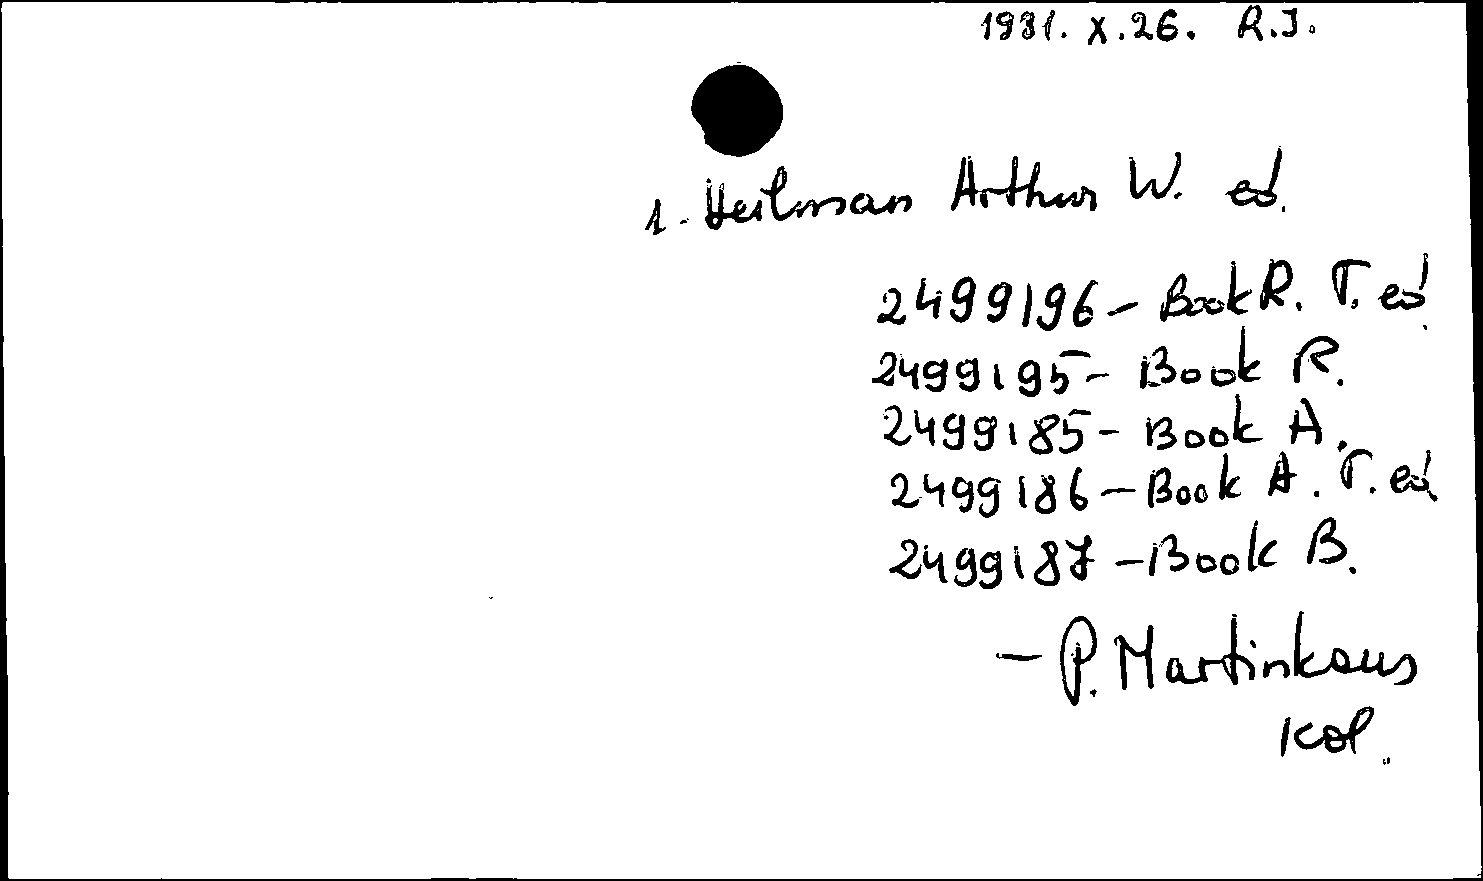 1981. X.26. R.J.
1. Heilman Arthur W. ed.
2499196 – Book R. T. ed.
2499195 – Book R.
2499185 – Book A.
2499186 – Book A. T. ed.
2499187 – Book B.
– P. Martinkaus
kol.